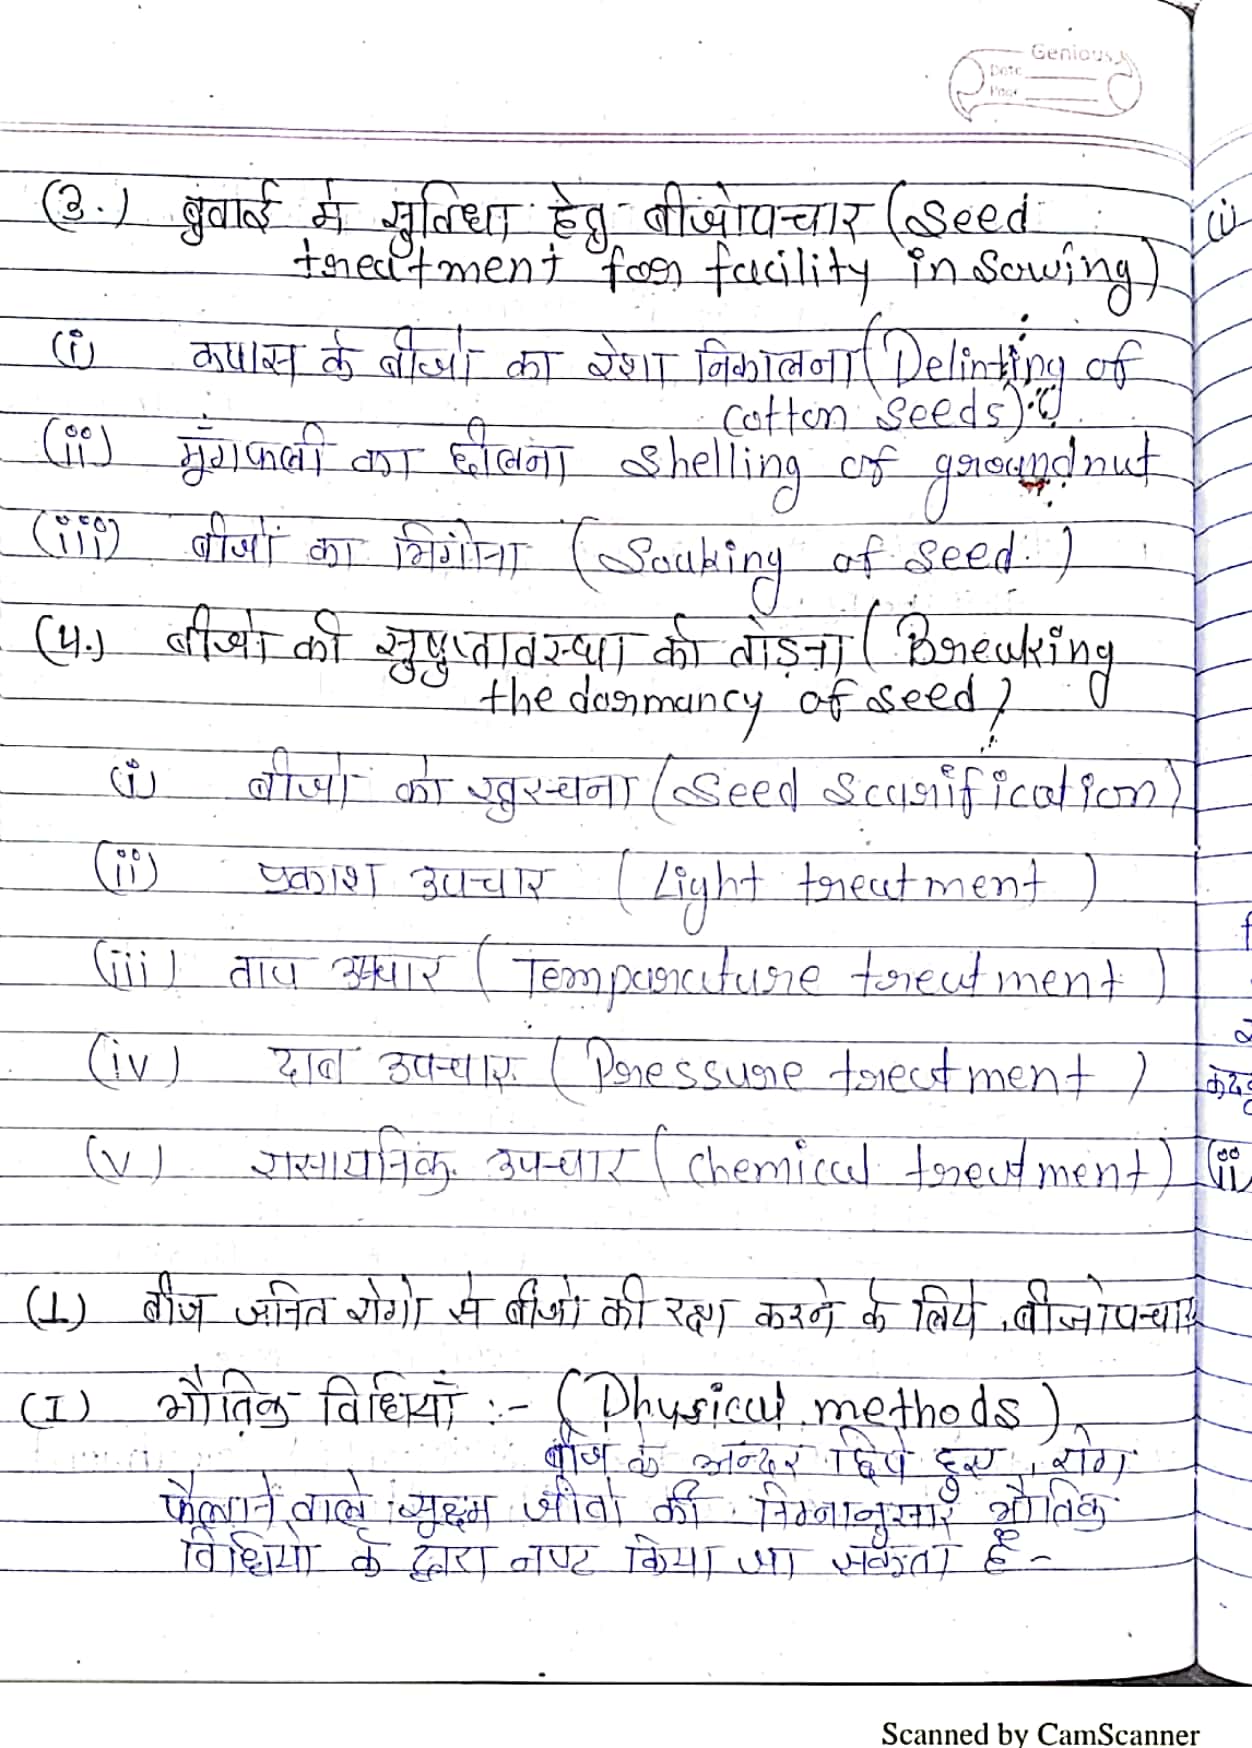 Genious
Date
Page
(3.) बुवाई मे सुविधा हेतु बीजोपचार (Seed
treatment for facility in Sowing)
(i) कपास के बीजों का रेशा निकालना (Delinting of
cotton seeds)
(ii) मुंगफली का छीलना Shelling of groundnut
(iii) बीजों का भिगोना (Soaking of seed.)
(4.) बीजों की सुषुप्तावस्था को तोड़ना (Breaking
the dormancy of seed)
(i) बीजों को खुरचना (Seed Scarification)
(ii) प्रकाश उपचार (Light treatment)
(iii) ताप उपचार (Temparature treatment)
(iv) दाब उपचार (Pressure treatment)
(v) रासायनिक उपचार (Chemical treatment)
(1) बीज जनित रोगो से बीजों की रक्षा करने के लिये बीजोपचार
(I) भौतिक विधियाँ :- (Physical methods)
बीज के अन्दर छिपे हुए रोग
फैलाने वाले सूक्ष्म जीवों की निम्नानुसार भौतिक
विधियो के द्वारा नष्ट किया जा सकता है -
Scanned by CamScanner